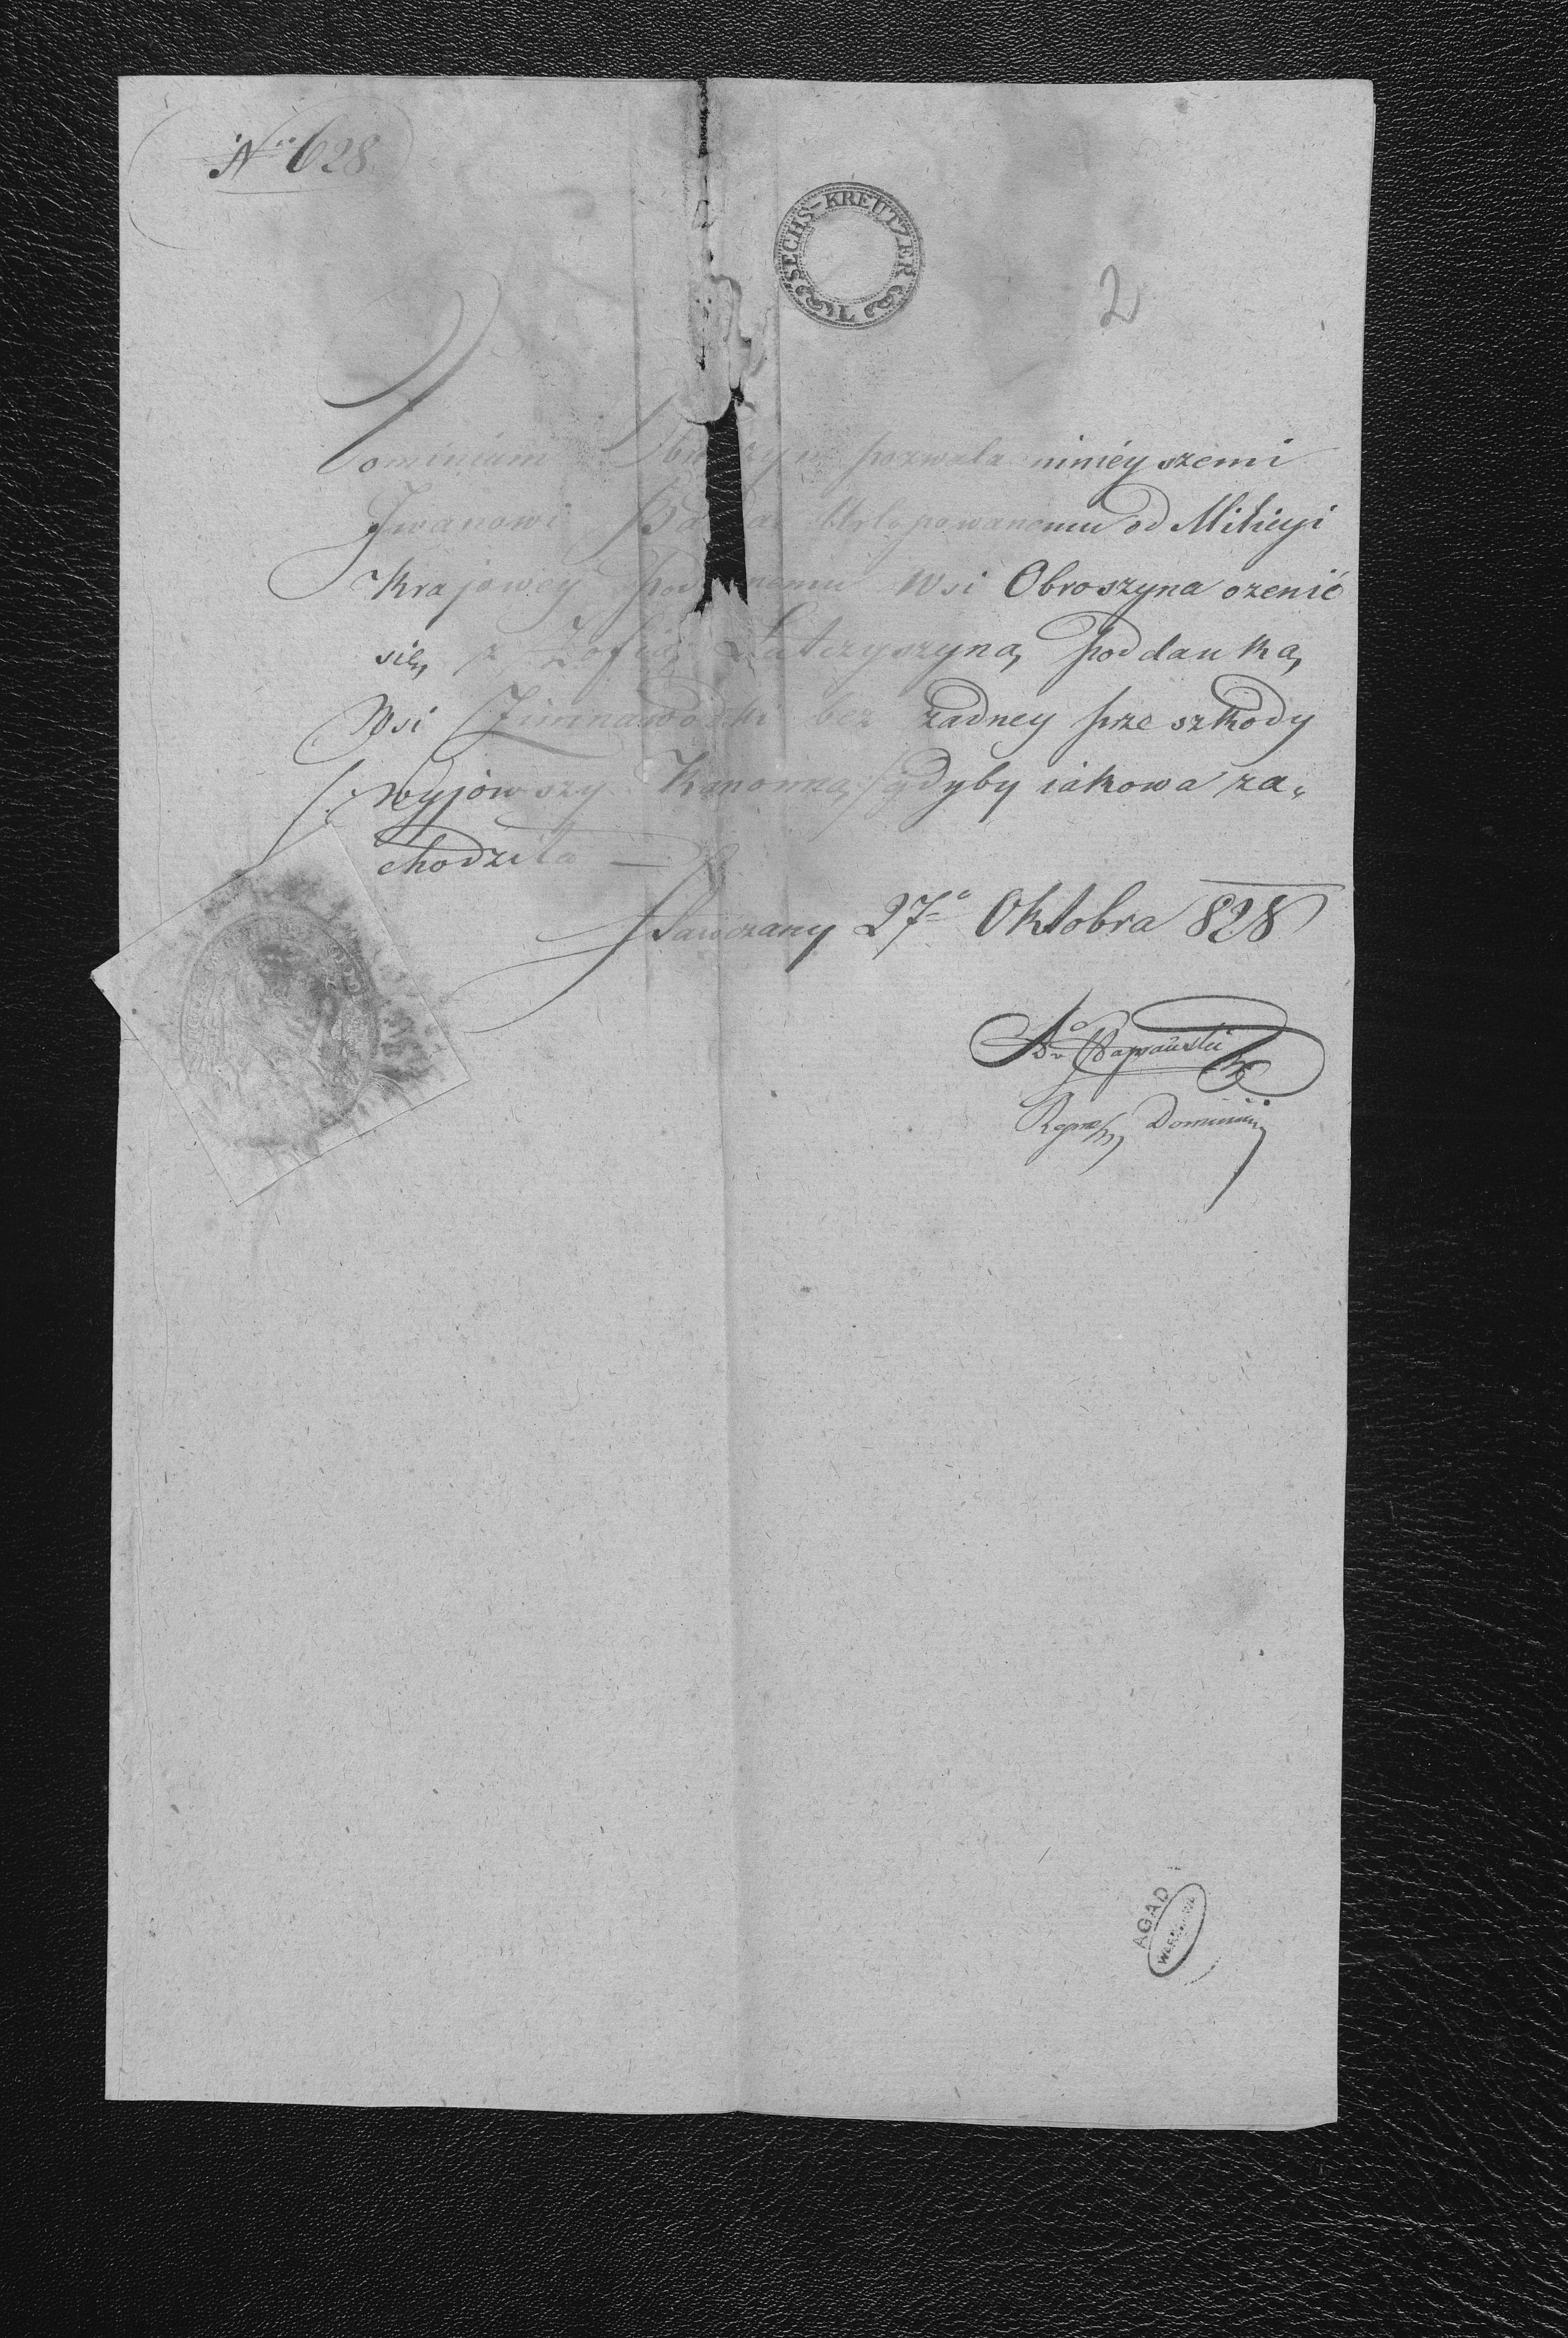 Nro 628.
SECHS-KREUTZER
L
2
Dominium pozwala ninieyszemi
Jwanowi Urlopowanemu od Milicyi
Krajowey Wsi Obroszyna ozenić
się z Zofią Łatczyszyną poddanką
Wsi Zimnawodki bez zadney przeszkody
/: wyjowszy Kanonną gdyby iakowa za„
chodziła —
27o Oktobra 828
Dominii
AGAD
WARSZAWA